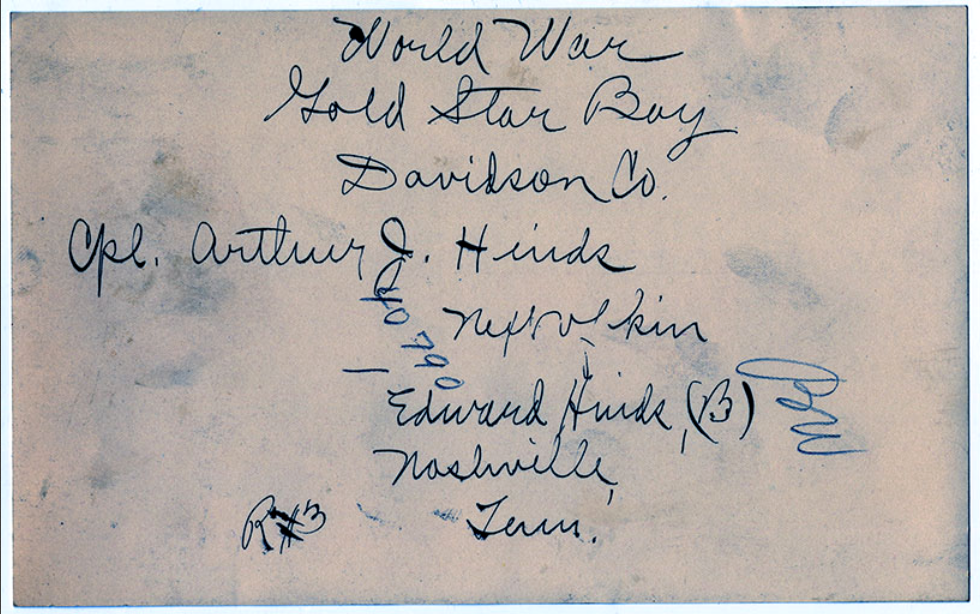 World War
Gold Star Boy
Davidson Co.
Cpl. Arthur J. Hinds
Next of kin
Edward Hinds, (B)
Nashville,
R#3 Tenn.